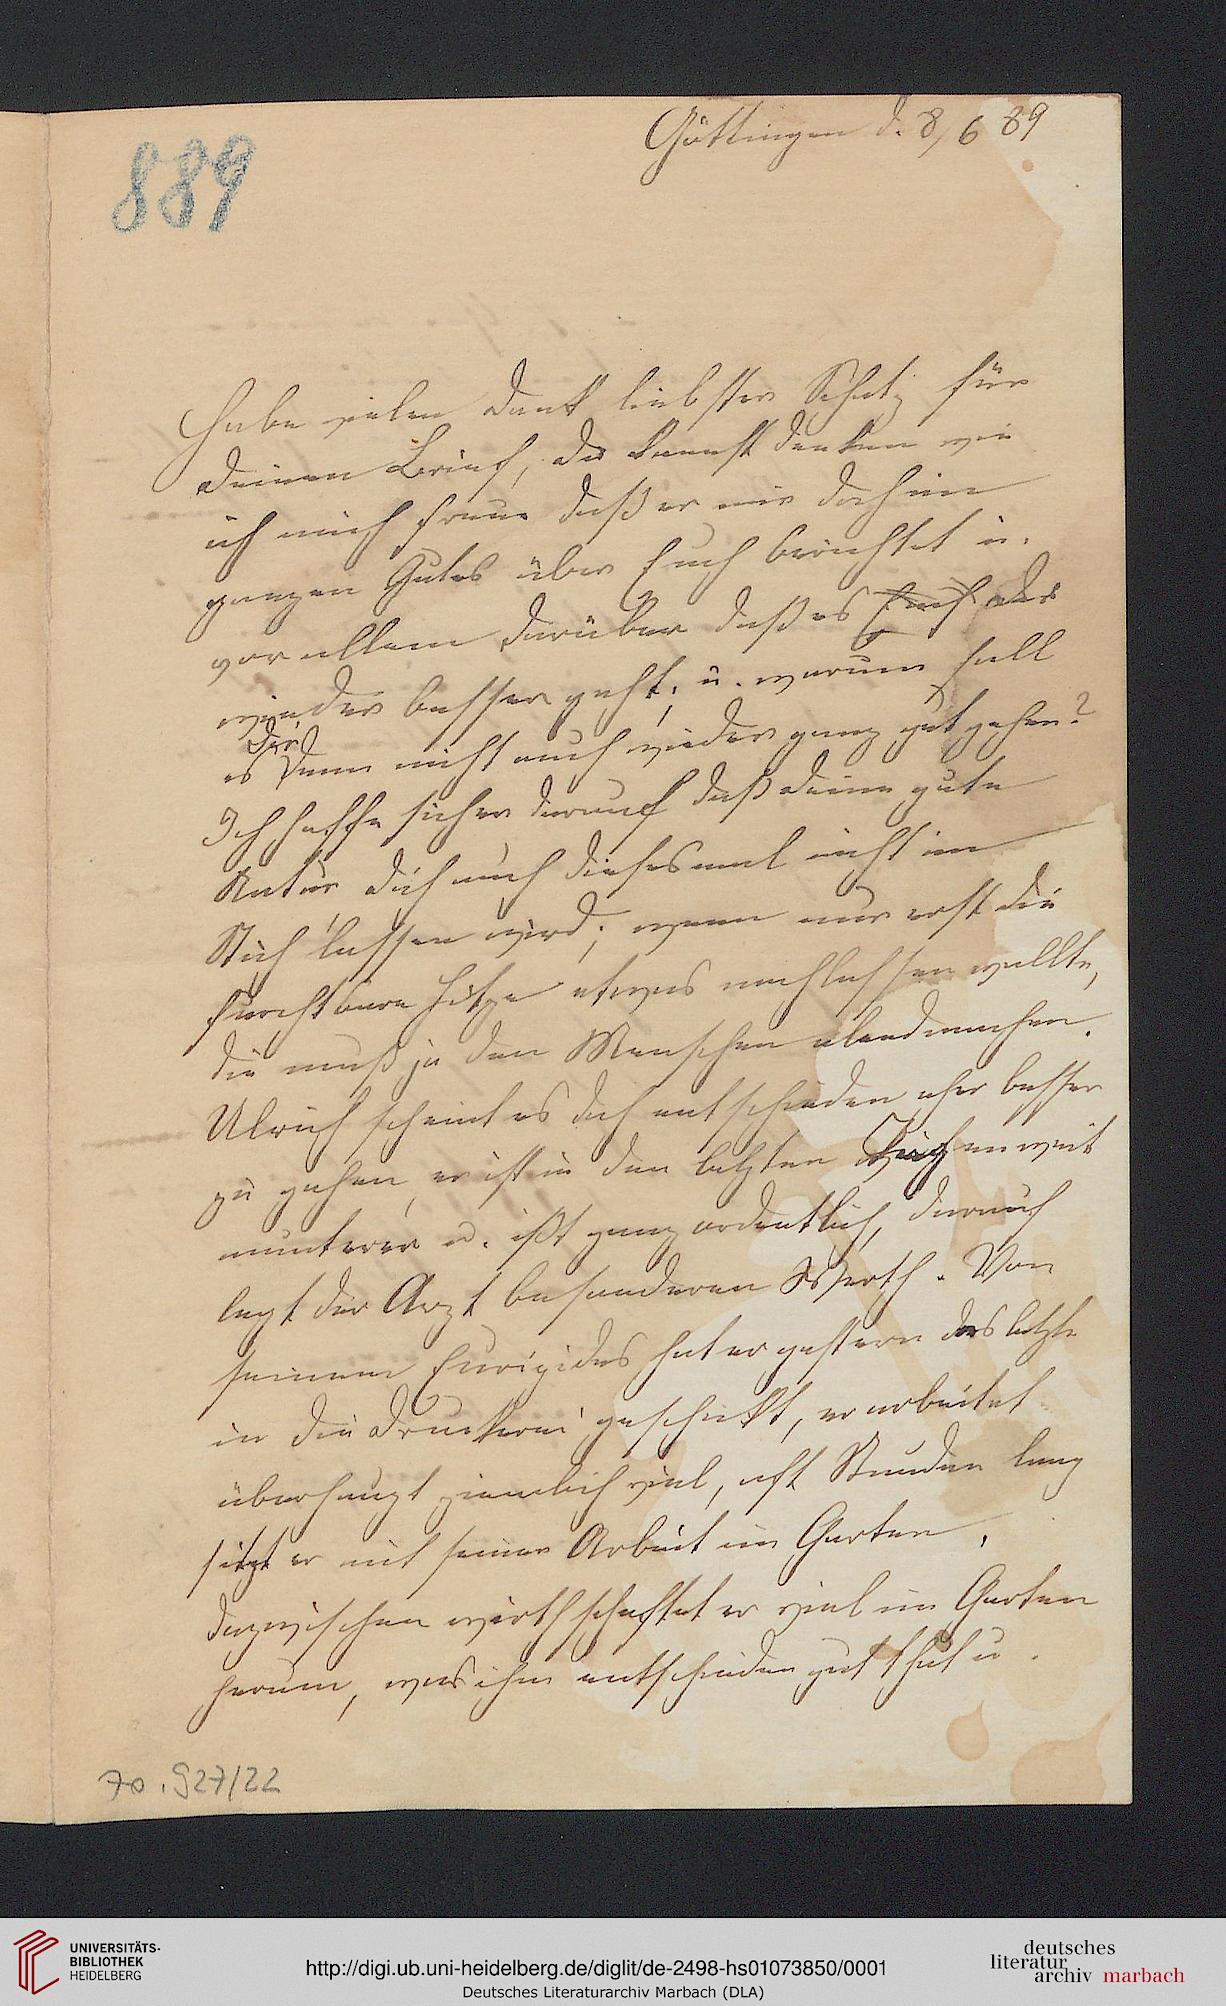 Göttingen d. 8/6 89
889
Habe vielen Dank liebster Schatz für
Deinen Brief, Du kannst denken wie
ich mich freue daß er mir doch im
ganzen Gutes über Euch berichtet u.
vor allem darüber daß es Euch
wieder besser geht; u. warum soll
Dir
es denn nicht auch wieder ganz gut gehen?
Ich hoffe sicher darauf daß Deine gute
Natur Dich auch diesesmal nicht im
Stich lassen wird; wenn nur erst die
furchtbare Hitze etwas nachlassen wollte,
die muß ja den Menschen elend machen.
Ulrich scheint es doch entschieden eher besser
zu gehen, er ist in den letzten Tagen weit
munterer u. ißt ganz ordentlich, darauf
legt der Arzt besonderen Werth. Von
seinem Euripides hat er gestern das letzte
in die Druckerei geschickt, er arbeitet
überhaupt ziemlich viel, oft Stunden lang
sitzt er mit seiner Arbeit im Garten,
dazwischen wirthschaftet er viel im Garten
herum, was ihm entschieden gut thut u.
70.927/22
UNIVERSITÄTS-
BIBLIOTHEK
HEIDELBERG
http://digi.ub.uni-heidelberg.de/diglit/de-2498-hs01073850/0001
Deutsches Literaturarchiv Marbach (DLA)
deutsches
literatur
archiv marbach